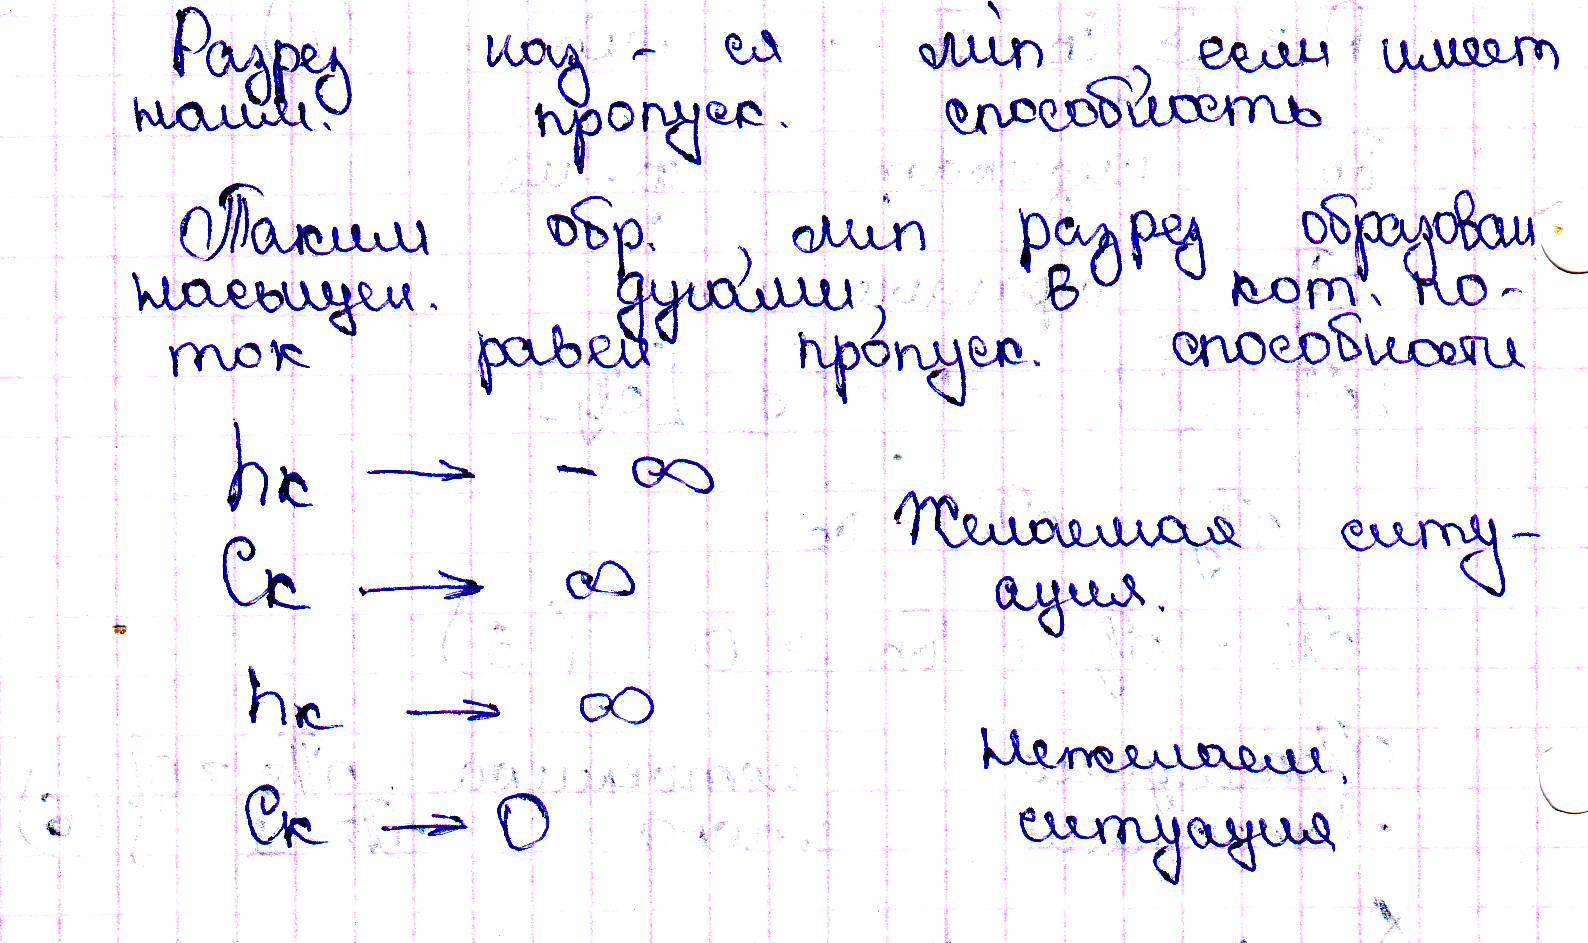 Разрез наз-ся min, если имеет
наим. пропуск. способность
Таким обр., min разрез образован
насыщен. дугами, в кот. по-
ток равен пропуск. способности
hк → - ∞
Cк → ∞
Желаемая ситу-
ация.
hк → ∞
Cк → 0
Нежелаем.
ситуация